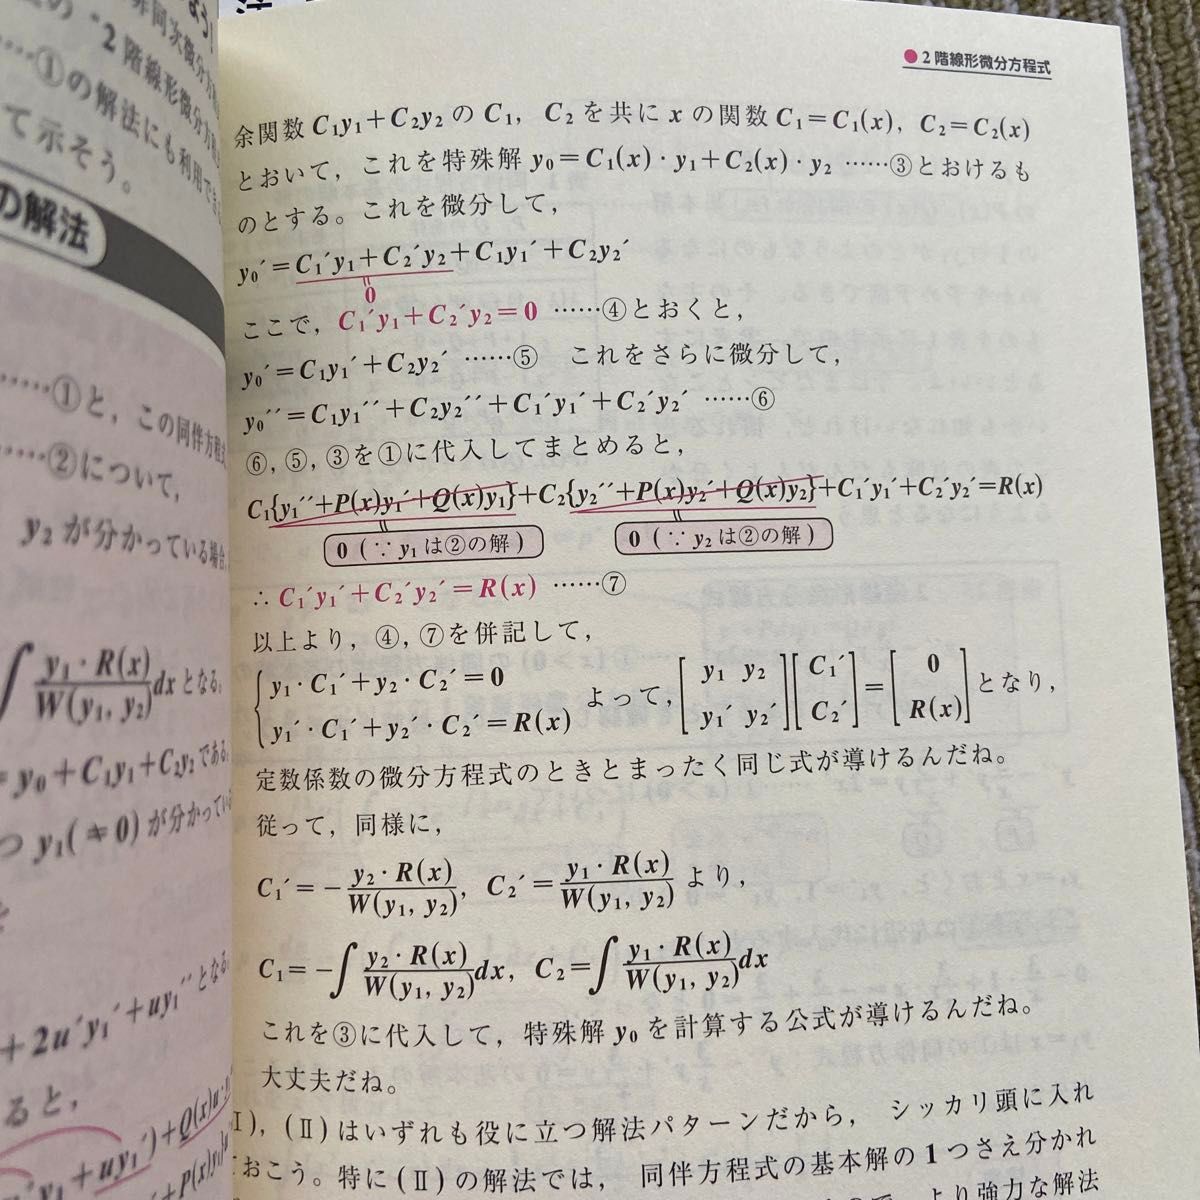 法
非同次微分方
の "2階線形微分方程
……①の解法にも利用でき
て示そう。
の解法
……①と，この同伴方程式
……②について，
y₂ が分かっている場合，
∫ y₁・R(x)/W(y₁, y₂) dx となる。
= y₀ + C₁y₁ + C₂y₂ である。
つ y₁(≠0) が分かってい
+ 2u′y₁′ + uy₁′′ となる。
ると，
● 2 階線形微分方程式
余関数 C₁y₁ + C₂y₂ の C₁, C₂ を共に x の関数 C₁ = C₁(x), C₂ = C₂(x)
とおいて，これを特殊解 y₀ = C₁(x)・y₁ + C₂(x)・y₂ ……③とおけるも
のとする。これを微分して，
y₀′ = C₁′y₁ + C₂′y₂ + C₁y₁′ + C₂y₂′
0
ここで，C₁′y₁ + C₂′y₂ = 0 ……④とおくと，
y₀′ = C₁y₁′ + C₂y₂′ ……⑤ これをさらに微分して，
y₀′′ = C₁y₁′′ + C₂y₂′′ + C₁′y₁′ + C₂′y₂′ ……⑥
⑥, ⑤, ③を①に代入してまとめると，
C₁{y₁′′ + P(x)y₁′ + Q(x)y₁} + C₂{y₂′′ + P(x)y₂′ + Q(x)y₂} + C₁′y₁′ + C₂′y₂′ = R(x)
0（∵ y₁ は②の解） 0（∵ y₂ は②の解）
∴ C₁′y₁′ + C₂′y₂′ = R(x) ……⑦
以上より，④, ⑦を併記して，
{ y₁・C₁′ + y₂・C₂′ = 0
y₁′・C₁′ + y₂′・C₂′ = R(x) よって，[y₁ y₂; y₁′ y₂′][C₁′; C₂′] = [0; R(x)] となり，
定数係数の微分方程式のときとまったく同じ式が導けるんだね。
従って，同様に，
C₁′ = − y₂・R(x)/W(y₁, y₂), C₂′ = y₁・R(x)/W(y₁, y₂) より，
C₁ = −∫ y₂・R(x)/W(y₁, y₂) dx, C₂ = ∫ y₁・R(x)/W(y₁, y₂) dx
これを③に代入して，特殊解 y₀ を計算する公式が導けるんだね。
大丈夫だね。
I)，(Ⅱ)はいずれも役に立つ解法パターンだから，シッカリ頭に入れ
ておこう。特に(Ⅱ)の解法では，同伴方程式の基本解の1つさえ分かれ
より強力な解法